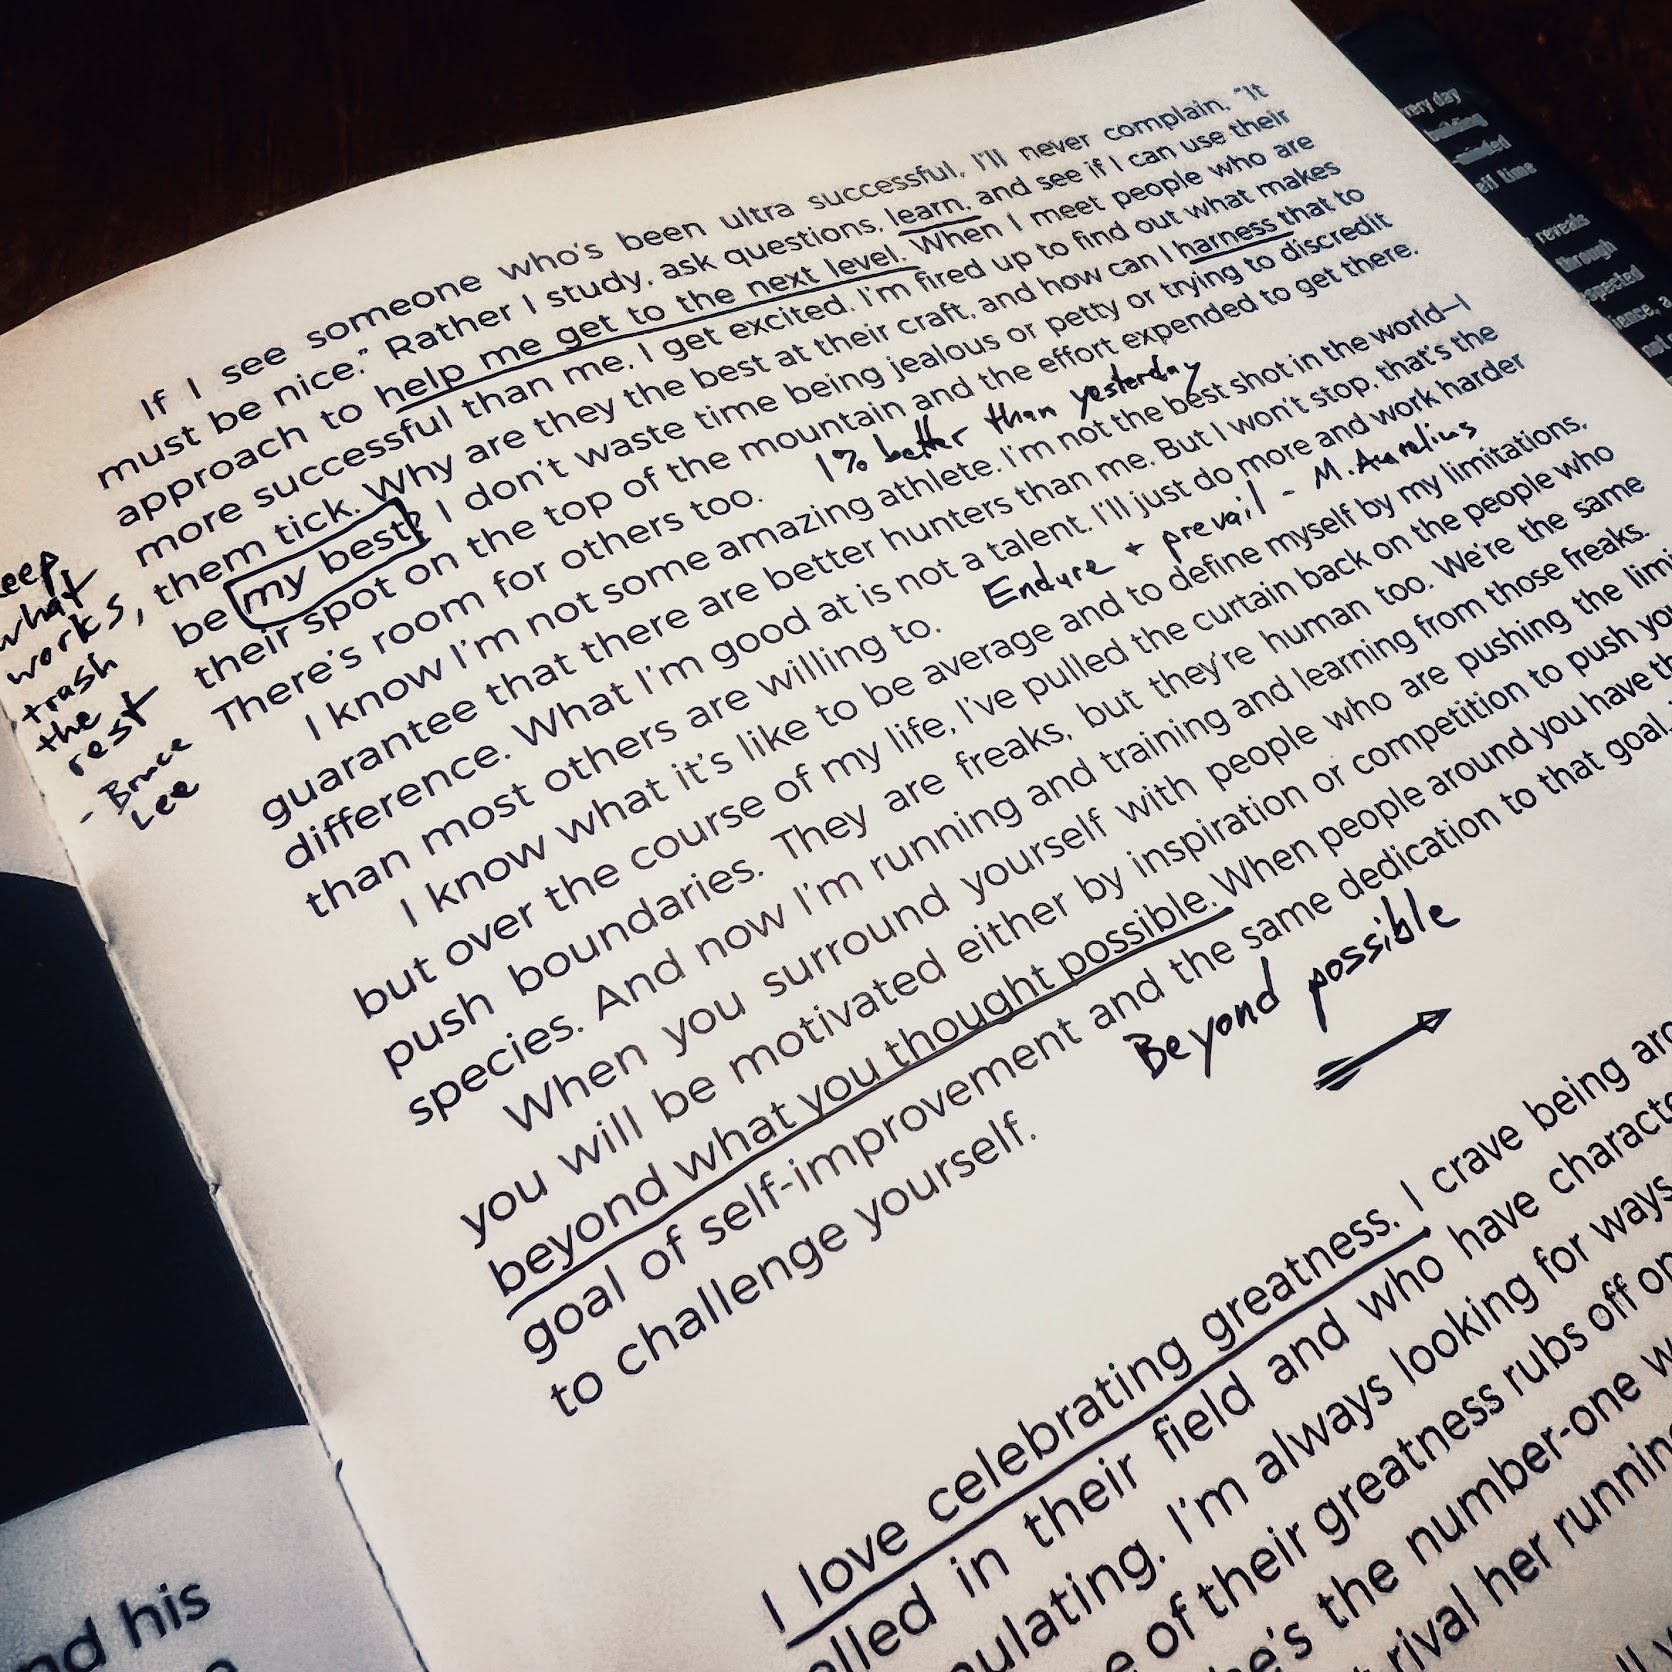 If I see someone who's been ultra successful, I'll never complain, "It
must be nice." Rather I study, ask questions, learn, and see if I can use their
approach to help me get to the next level. When I meet people who are
more successful than me, I get excited. I'm fired up to find out what makes
them tick. Why are they the best at their craft, and how can I harness that to
be my best? I don't waste time being jealous or petty or trying to discredit
their spot on the top of the mountain and the effort expended to get there.
There's room for others too.
1% better than yesterday
I know I'm not some amazing athlete. I'm not the best shot in the world—I
guarantee that there are better hunters than me. But I won't stop, that's the
difference. What I'm good at is not a talent. I'll just do more and work harder
than most others are willing to.
Endure + prevail - M. Aurelius
I know what it's like to be average and to define myself by my limitations,
but over the course of my life, I've pulled the curtain back on the people who
push boundaries. They are freaks, but they're human too. We're the same
species. And now I'm running and training and learning from those freaks.
When you surround yourself with people who are pushing the
you will be motivated either by inspiration or competition to push
beyond what you thought possible. When people around you have
goal of self-improvement and the same dedication to that goal,
to challenge yourself.
Beyond possible
I love celebrating greatness. I crave being
in their field and who have
I'm always looking for ways
of their greatness rubs off on
the number-one
rival her running
what
works,
trash
the
rest
- Bruce
Lee
his
every day
building
-minded
time
reveals
through